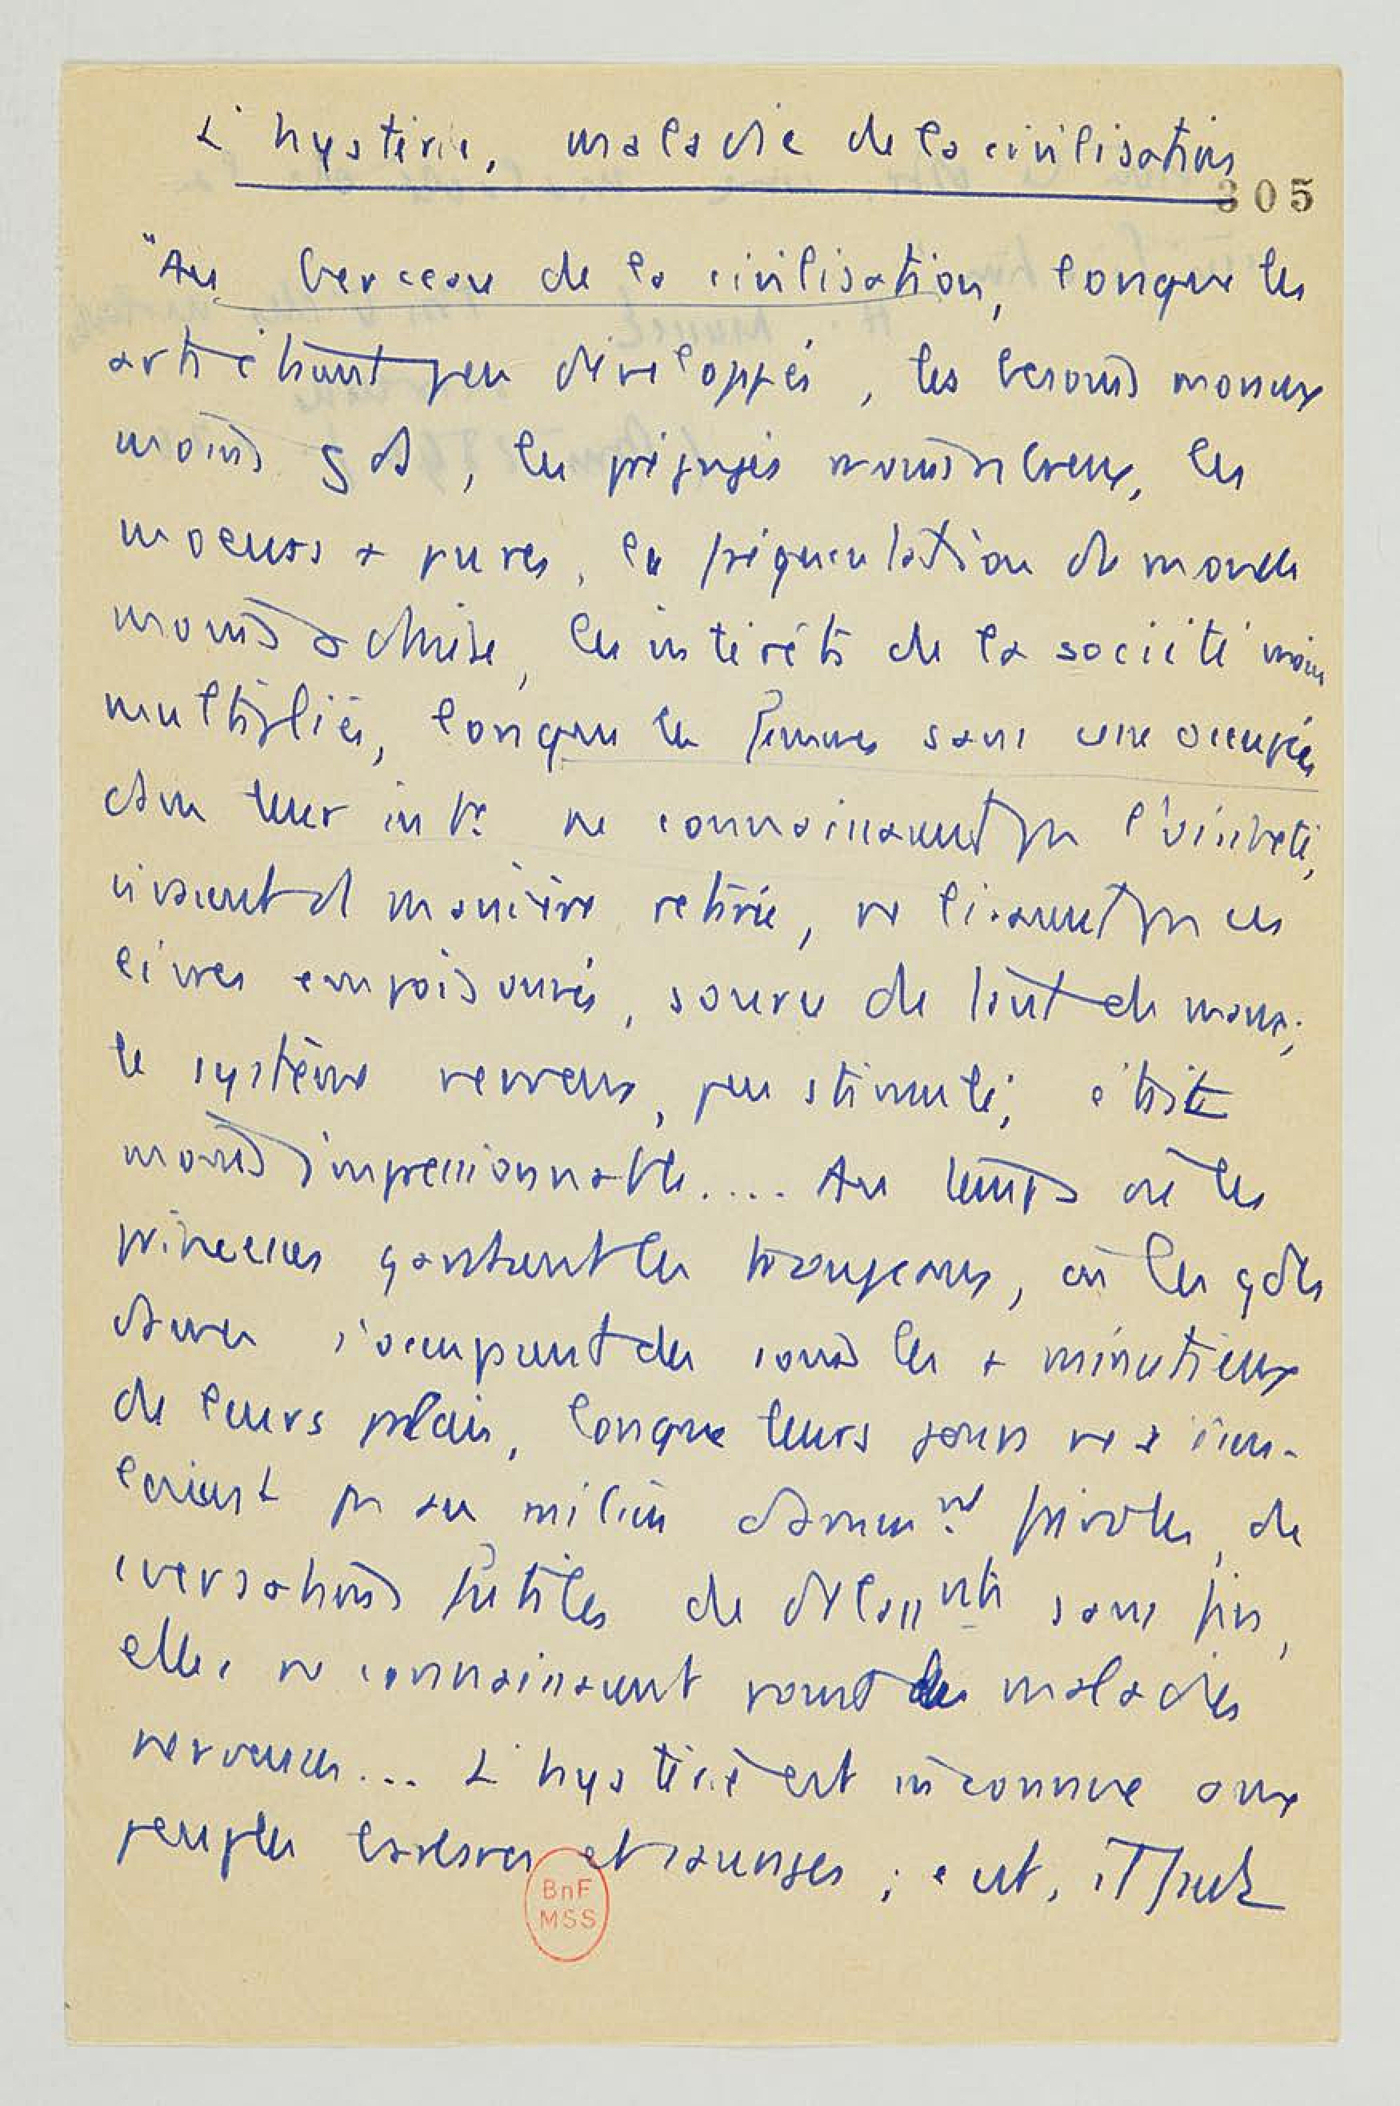 L'hystérie, maladie de la civilisation
305
"Au berceau de la civilisation, lorsque les
arts étaient peu développés, les besoins moraux
moins gds, les préjugés moins nbreux, les
moeurs + pures, la fréquentation du monde
moins active, les intérêts de la société moins
multipliés, lorsque les femmes sans cesse occupées
dans leur intr ne connaissaient pas l'oisiveté,
vivaient d manière retirée, ne lisaient pas ces
livres empoisonnés, source de tant de maux;
le système nerveux, peu stimulé, était
moins impressionnable.... Au temps où les
princesses gardaient les troupeaux, où les gdes
dames s'occupaient des soins les + minutieux
de leurs palais, lorsque leurs jours ne s'écou-
laient pas au milieu d'amusnt frivoles, de
cversations futiles de délassnts sans fin,
elles ne connaissaient point les maladies
nerveuses... L'hystérie est inconnue aux
peuples barbares et sauvages; c'est,
BnF
MSS